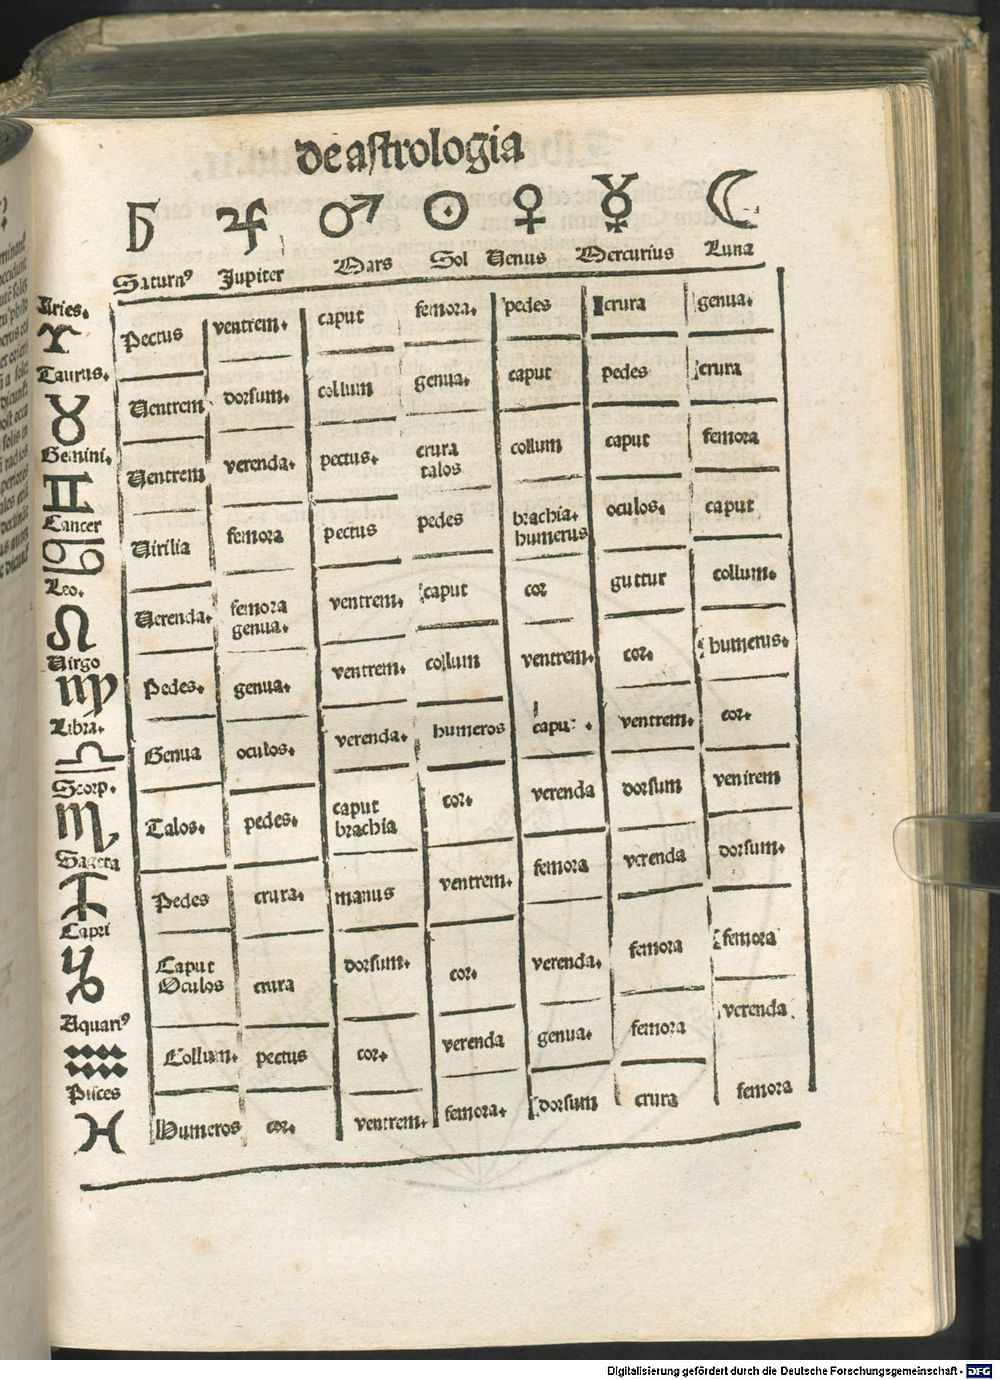 de astrologia
Saturnꝰ Jupiter Mars Sol Uenus Mercurius Luna
Aries. Pectus ventrem. caput femora. pedes crura genua.
Taurus. Uentrem dorsum. collum genua. caput pedes crura
Gemini. Uentrem verenda. pectus. crura talos collum caput femora
Cancer Uirilia femora pectus pedes brachia. humerus oculos. caput
Leo. Uerenda. femora genua. ventrem. caput cor guttur collum.
Uirgo Pedes. genua. ventrem. collum ventrem. cor. humerus.
Libra. Genua oculos. verenda. humeros ventrem. cor.
Scorp. Talos. pedes. caput brachia cor. verenda dorsum ventrem
Sagita Pedes crura. manus ventrem. femora verenda dorsum.
Capri Caput Oculos crura dorsum. cor. verenda. femora femora
Aquariꝰ Collum. pectus cor. verenda genua. femora verenda
Pisces Humeros cor. ventrem. femora. dorsum crura femora
Digitalisierung gefördert durch die Deutsche Forschungsgemeinschaft - DFG